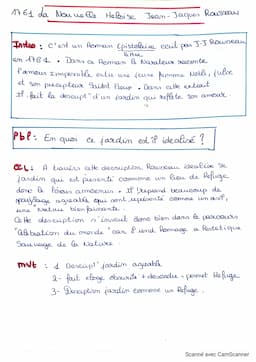 1761 La Nouvelle Héloïse Jean-Jacques Rousseau
Intro : C'est un Roman Epistolaire écrit par J-J Rousseau
lettre
en 1761. Dans ce Roman le Narrateur raconte
l'amour Impossible entre une jeune femme Noble, Julie
et son précepteur Saint Preux. Dans cette extrait
Il fait la descript° d'un jardin qui reflète son amour.
Pbl : En quoi ce jardin est il idéalisé ?
CCL : A travers cette description, Rousseau idéalise le
jardin qui est présenté comme un lieu de Refuge
donc le locus amoenus. Il prend beaucoup de
paysage agréable qui sont représenté comme un
une Nature bienfaisante.
Cette description s'inscrit donc bien dans le parcours
"Célébration du monde" car il rend Hommage a l'esthétique
Sauvage de la Nature.
mvt : 1 Descript° jardin agréable
2- fait éloge obscurité + permet Refuge
3- Description jardin comme un Refuge.
Scanné avec CamScanner